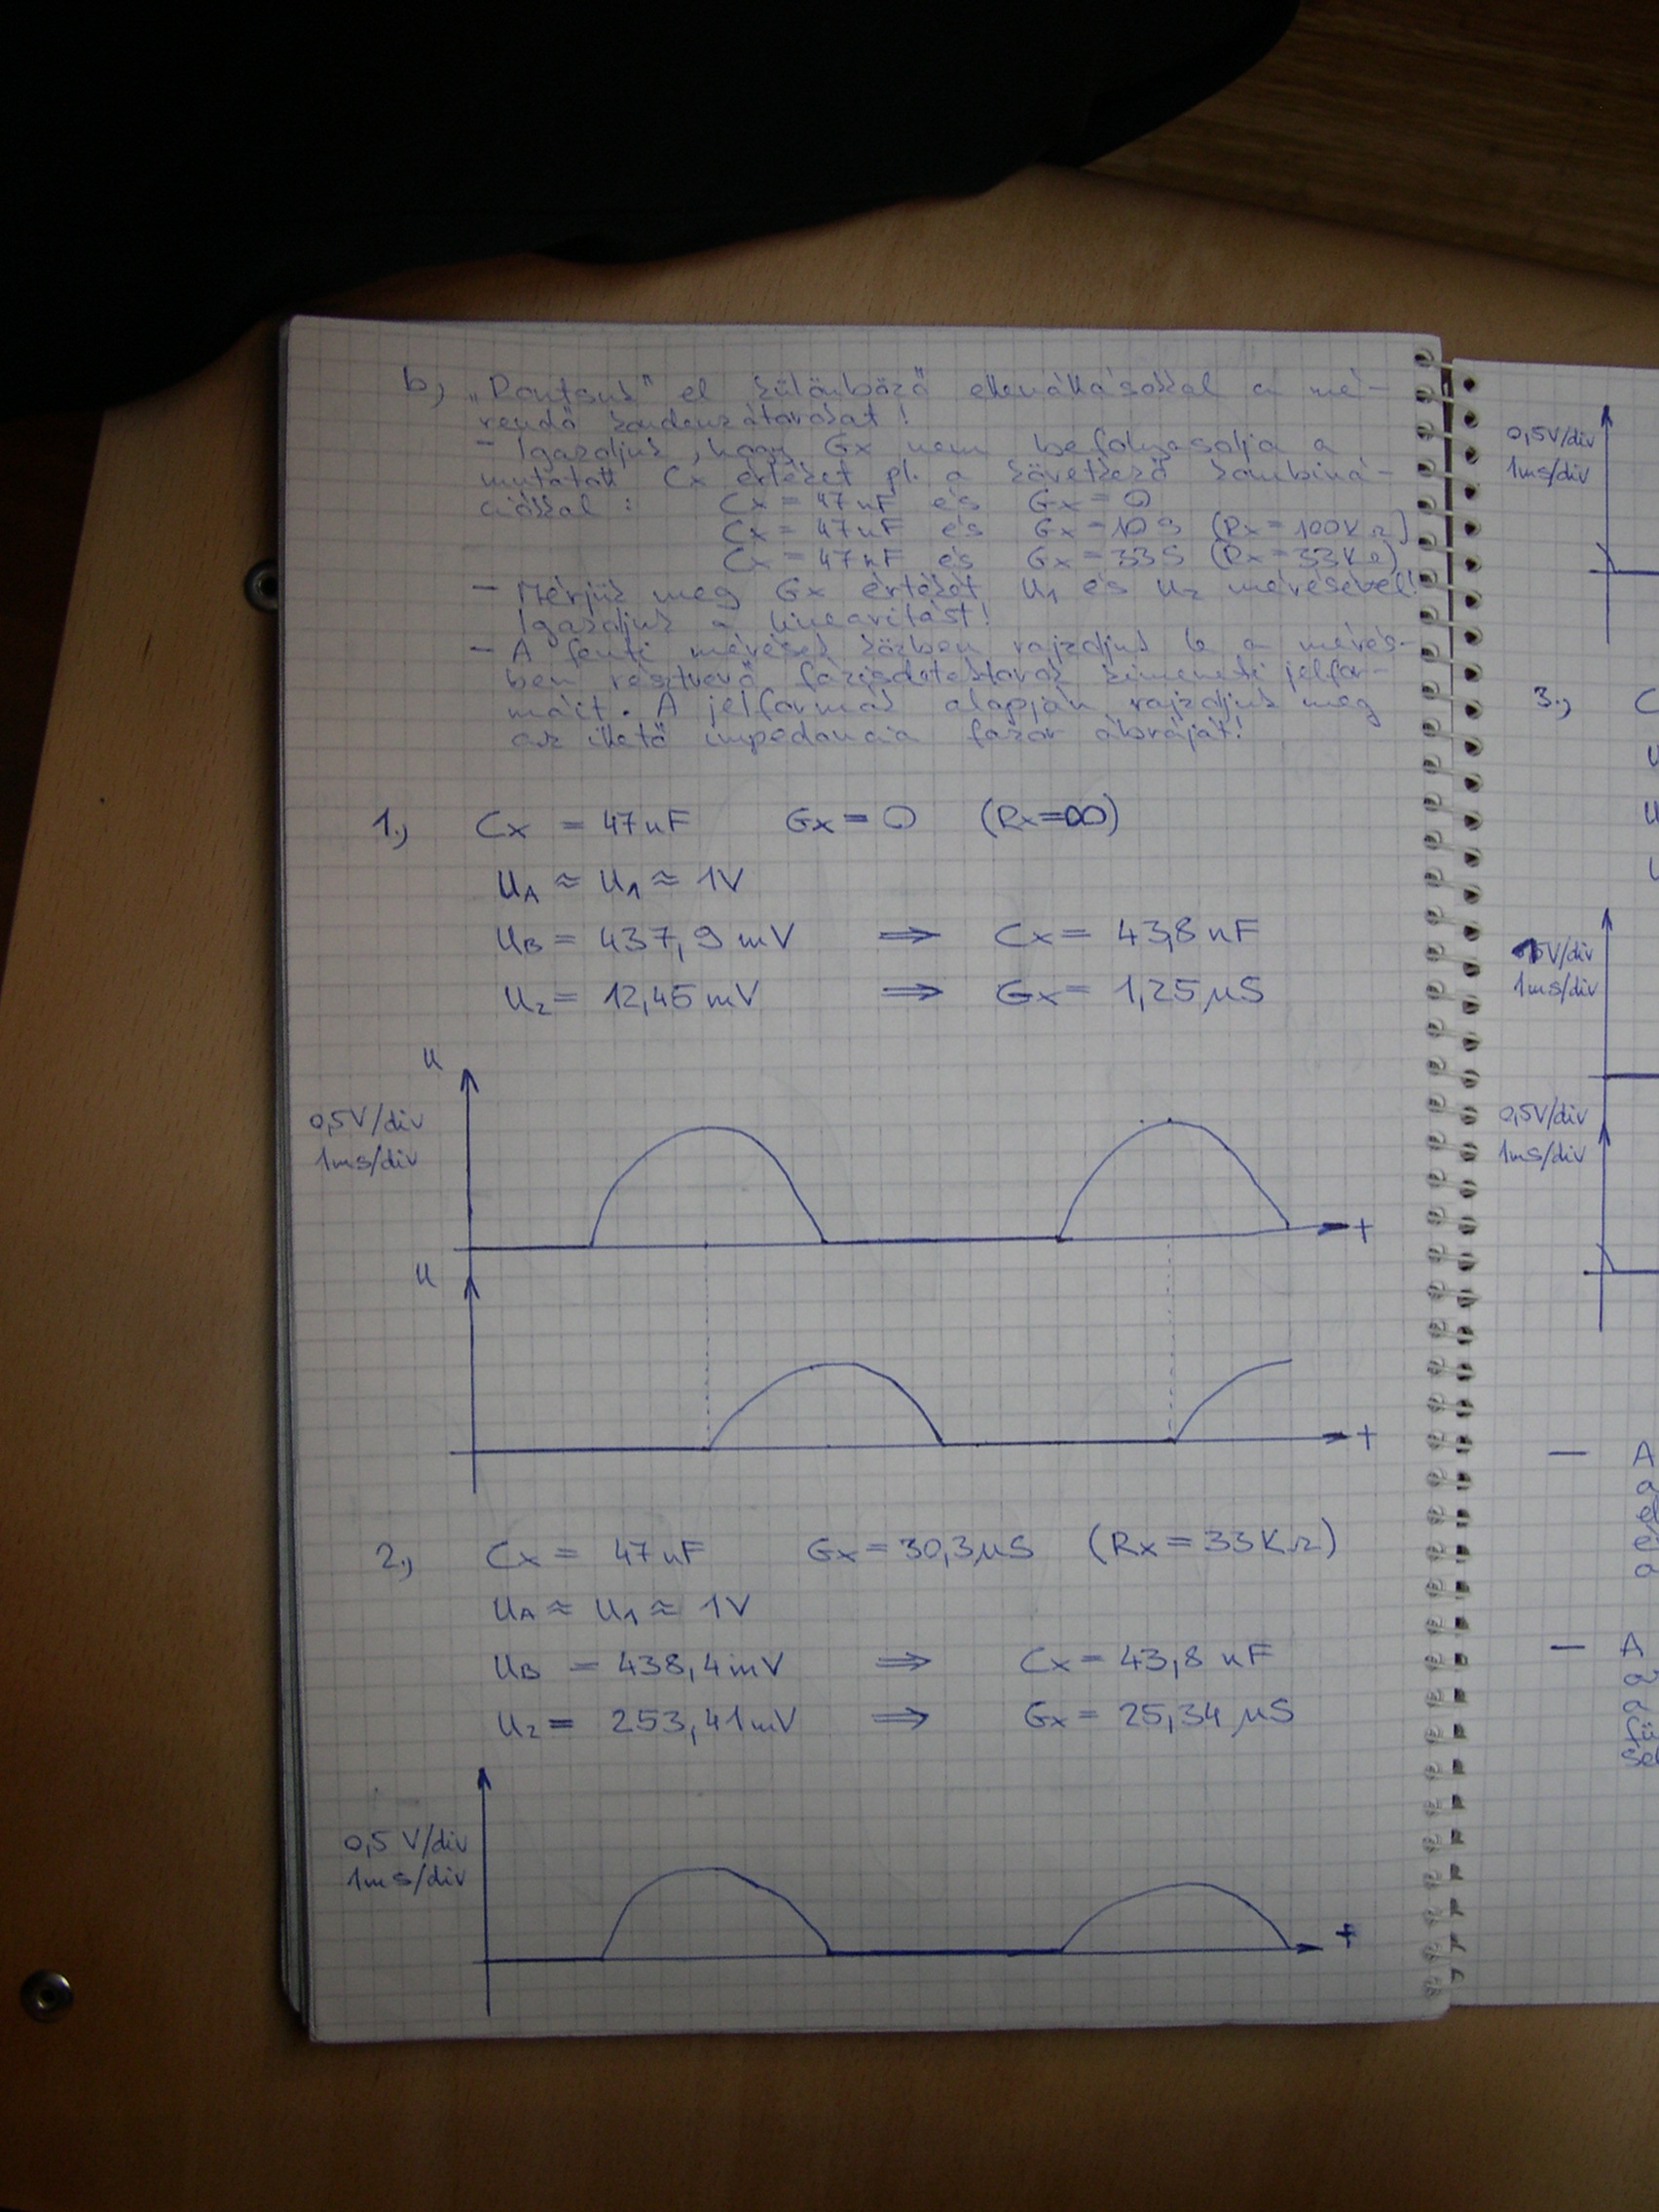 b, „Rontsuk" el különböző ellenállásokkal a mé-
rendő kondenzátorokat!
- Igazoljuk, hogy Gx nem befolyásolja a
mutatott Cx értéket pl. a következő kombiná-
ciókkal: Cx = 47nF és Gx = 0
Cx = 47nF és Gx = 10 S (Rx = 100KΩ)
Cx = 47nF és Gx = 33S (Rx = 33KΩ)
- Mérjük meg Gx értékét U1 és U2 mérésével!
Igazoljuk a linearitást!
- A fenti mérések közben rajzoljuk le a mérés-
ben résztvevő fázisdetektorok kimeneti jelfor-
máit. A jelformák alapján rajzoljuk meg
az illető impedancia fázor ábráját!
1., Cx = 47nF Gx = 0 (Rx=∞)
UA ≈ U1 ≈ 1V
UB = 437,9mV ⇒ Cx = 43,8nF
U2 = 12,45mV ⇒ Gx = 1,25µS
U
0,5V/div
1ms/div
t
U
t
2., Cx = 47nF Gx = 30,3µS (Rx = 33KΩ)
UA ≈ U1 ≈ 1V
UB = 438,4mV ⇒ Cx = 43,8nF
U2 = 253,41mV ⇒ Gx = 25,34µS
0,5 V/div
1ms/div
t
0,5V/div
1ms/div
3., C
U
U
U
V/div
1ms/div
0,5V/div
1ms/div
— A
a
el
é
a
— A
a
a
fü